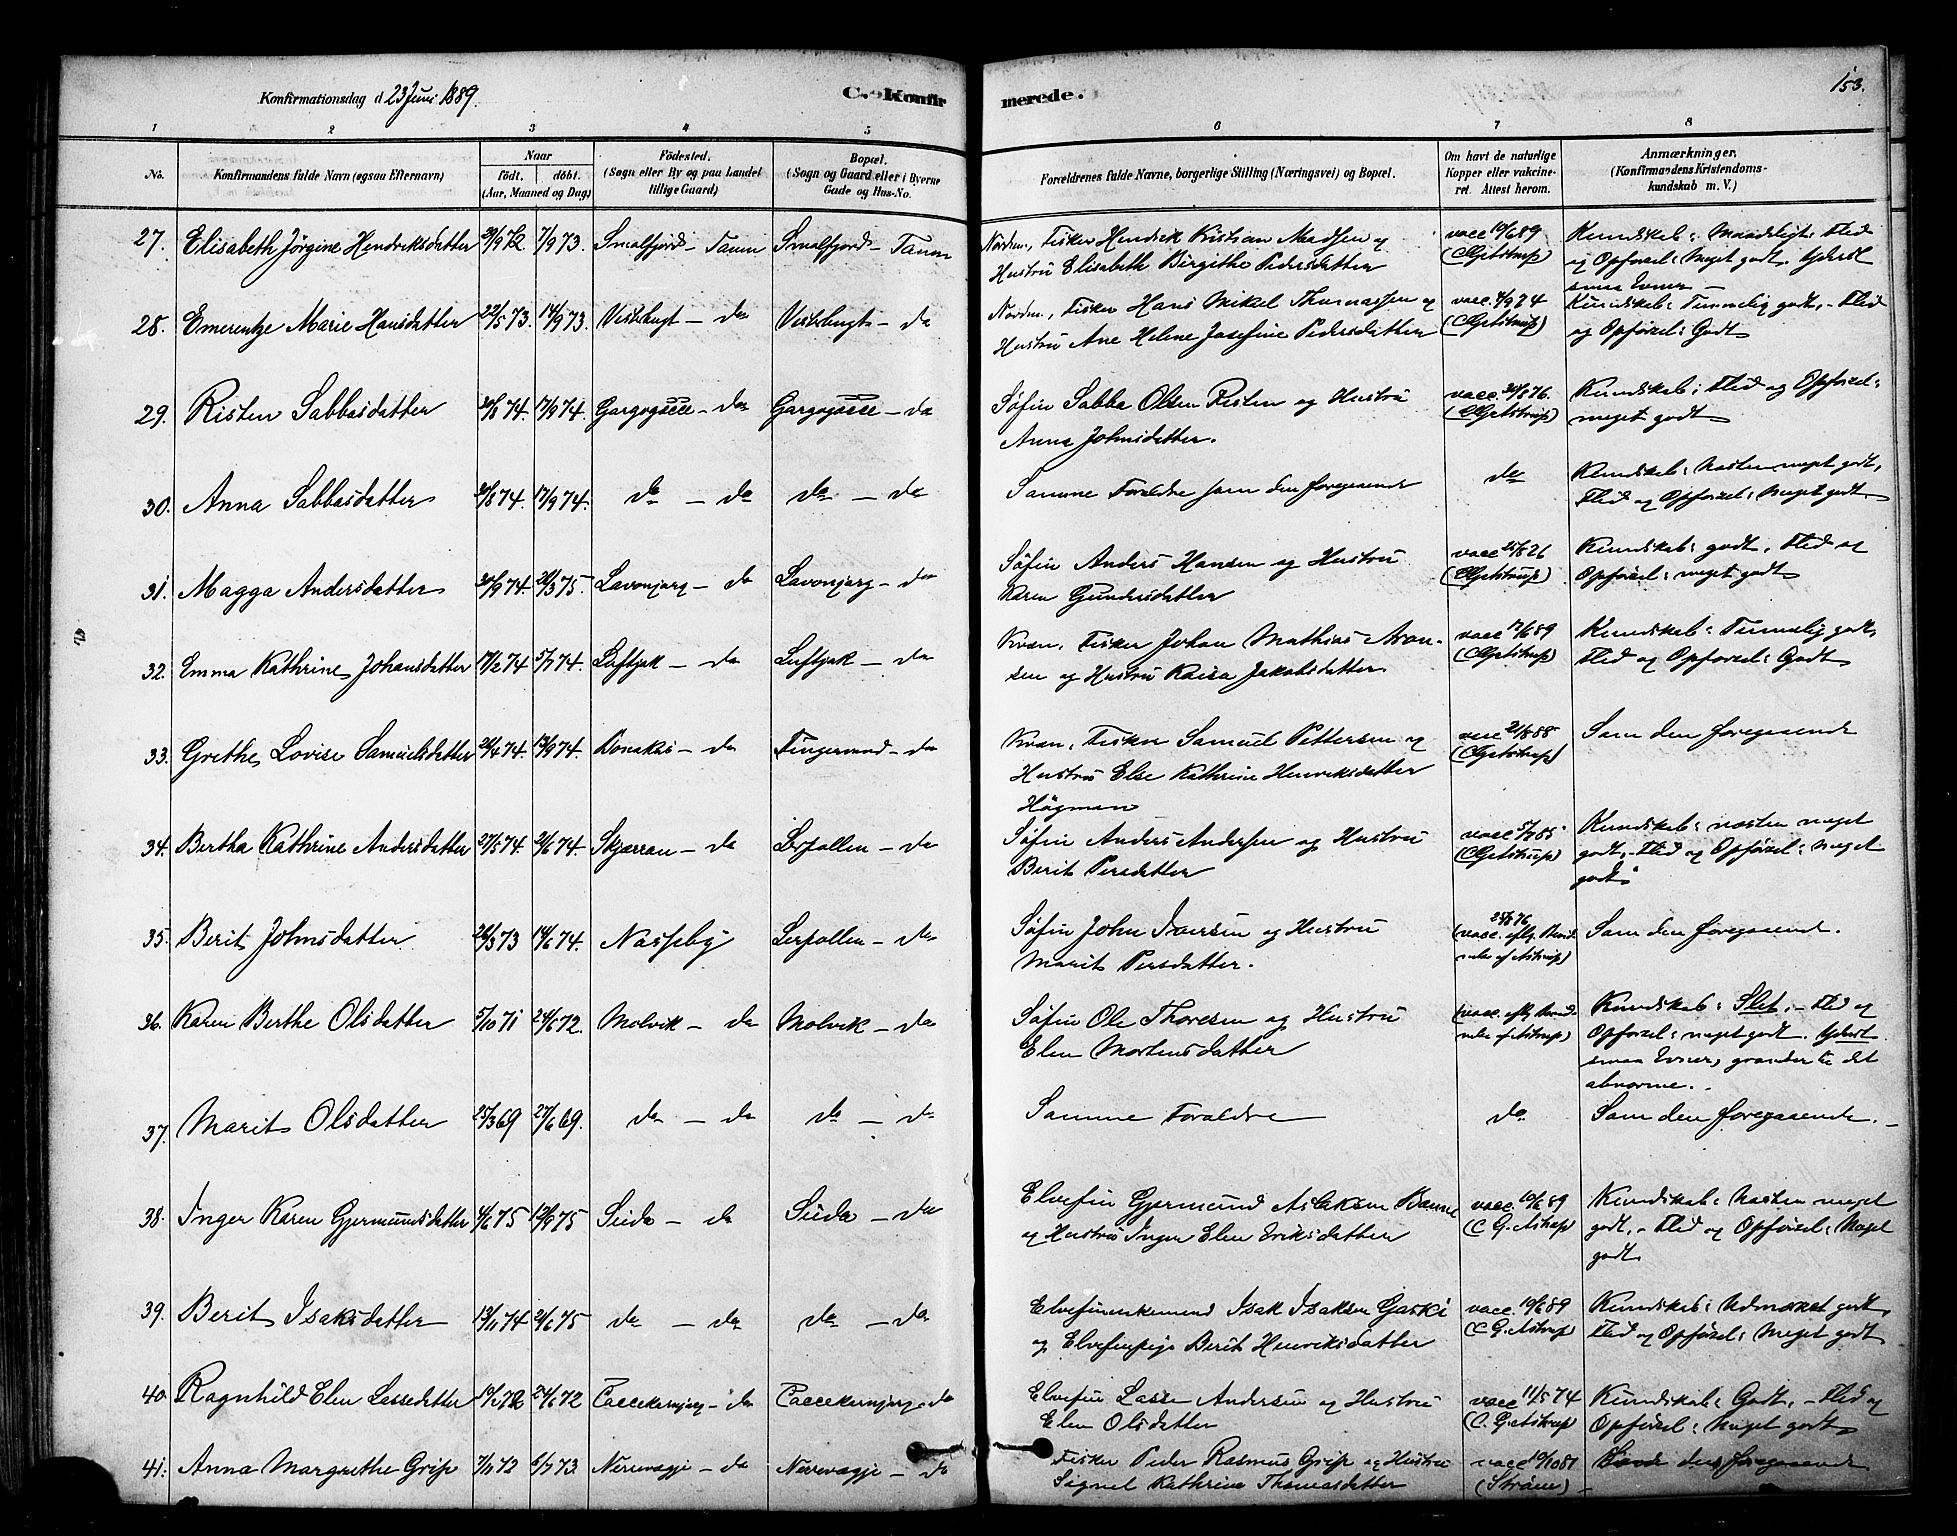 Konfirmationsdag d. 23 Juni 1889.
C. Konfirmerede.
153.
1 2 3 4 5 6 7 8
No. Konfirmandens fulde Navn (ogsaa Efternavn) Naar Födt. döbt. (Aar, Maaned og Dag) Födested. (Sogn eller By og paa Landet tillige Gaard) Bopæl. (Sogn og Gaard eller i Byerne Gade og Hus-No. Forældrenes fulde Navne, borgerlige Stilling (Næringsvei) og Bopæl. Om havt de naturlige Kopper eller vakcineret. Attest herom. Anmærkninger. (Konfirmandens Kristendomskundskab m. V.)
27. Elisabeth Jørgine Hendriksdatter 7/9 73. Smalfjord - Tanen Smalfjord - Tanen Nordm., Fisker Hendrik Kristian Madsen og vacc 10/6 89 Kundskab: Maadeligt. Flid
Hustru Elisabeth Birgithe Pedersdatter og Opførsel: Meget godt. Yderst
smaa Evner -
28. Emerentze Marie Hansdatter 22/5 73. 14/9 73. Vestertugt - do Nordm., Fisker Hans Mikel Thomassen og Kundskab: Temmelig godt, - Flid
Hustru Ane Helene Josefine Pedersdatter og Opførsel: Godt
29. Risten Sabbasdatter 30/8 74. 17/9 74. - do - do Søfin Sabba Olsen Risten og Hustru vacc 30/8 76. Kundskab: Flid og Opførsel:
Anna Johnsdatter. meget godt
30. Anna Sabbasdatter 30/8 74. 17/9 74. do - do do - do Samme Foraldre som den foregaaende do Kundskab: Nasten meget godt,
Flid og Opførsel: Meget godt
31. Magga Andersdatter 30/9 74. 28/3 75. Lavonjarg - do Lavonjarg - do Søfin Anders Hansen og Hustru Kundskab: godt, Flid og
Karen Gundersdatter Opførsel: meget godt
32. Emma Kathrine Johansdatter 17/2 74. 5/7 74. Luftjok - do Luftjok - do Kvæn, Fisker Johan Mathias Aronsen vacc 17/6 89 Kundskab: Temmelig godt,
og Hustru Kaisa Jakobsdatter Flid og Opførsel: Godt
33. Grethe Lovise Samuelsdatter 13/9 74. Bonakas - do - do Kvæn, Fisker Samuel Pettersen og vacc 21/8 88 Som den foregaaende
Hustru Else Kathrine Henriksdatter
Högman
34. Bertha Kathrine Andersdatter 27/5 74. 21/6 74. - do Lerpollen - do Søfin Anders Andersen og Hustru vacc 5/7 85 Kundskab: nasten meget
Berit Persdatter godt, - Flid og Opførsel: meget
godt
35. Berit Johnsdatter 26/3 73 14/6 74. Nasseby Lerpollen - do Søfin John Iversen og Hustru 25/8 76 Som den foregaaende.
Marit Persdatter.
36. Karen Berthe Olsdatter 5/10 71 24/6 72. Molvik - do Molvik - do Søfin Ole Thoresen og Hustru Kundskab: Slet. - Flid og
Elen Mortensdatter Opførsel: meget godt. Yderst
smaa Evner, grandser til det
abnorme.
37. Marit Olsdatter 25/3 69 27/6 69. do - do do - do Samme Foraldre do Som den foregaaende.
38. Inger Karen Gjermundsdatter 4/6 75 Siida - do Siida - do Elvefin Gjermund Aslaksen Banne vacc. 10/6 89 Kundskab: Nasten meget
og Hustru Inger Elen Eriksdatter (C. G. Astrup) godt, - Flid og Opførsel: Meget
godt
39. Berit Isaksdatter 13/11 74 21/6 75 do - do do - do Elvefinenkemand Isak Isaksen Gaski vacc. 10/6 89 Kundskab: Udmarket godt,
og Elvefinpige Berit Henriksdatter (C. G. Astrup) Flid og Opførsel: Meget godt
40. Ragnhild Elen Lassedatter 24/6 72 - do - do Elvefin Lasse Andersen og Hustru vacc 11/5 74 Kundskab: Godt, - Flid og
Elen Olsdatter (C. G. Astrup) Opførsel: Meget godt
41. Anna Margrethe Grip 7/11 72 6/7 73. Nerevagje - do Nerevagje - do Fisker Peder Rasmus Grip og Hustru vacc 19/10 81 Som den foregaaende
Signel Kathrine Thomasdatter (Strøm)